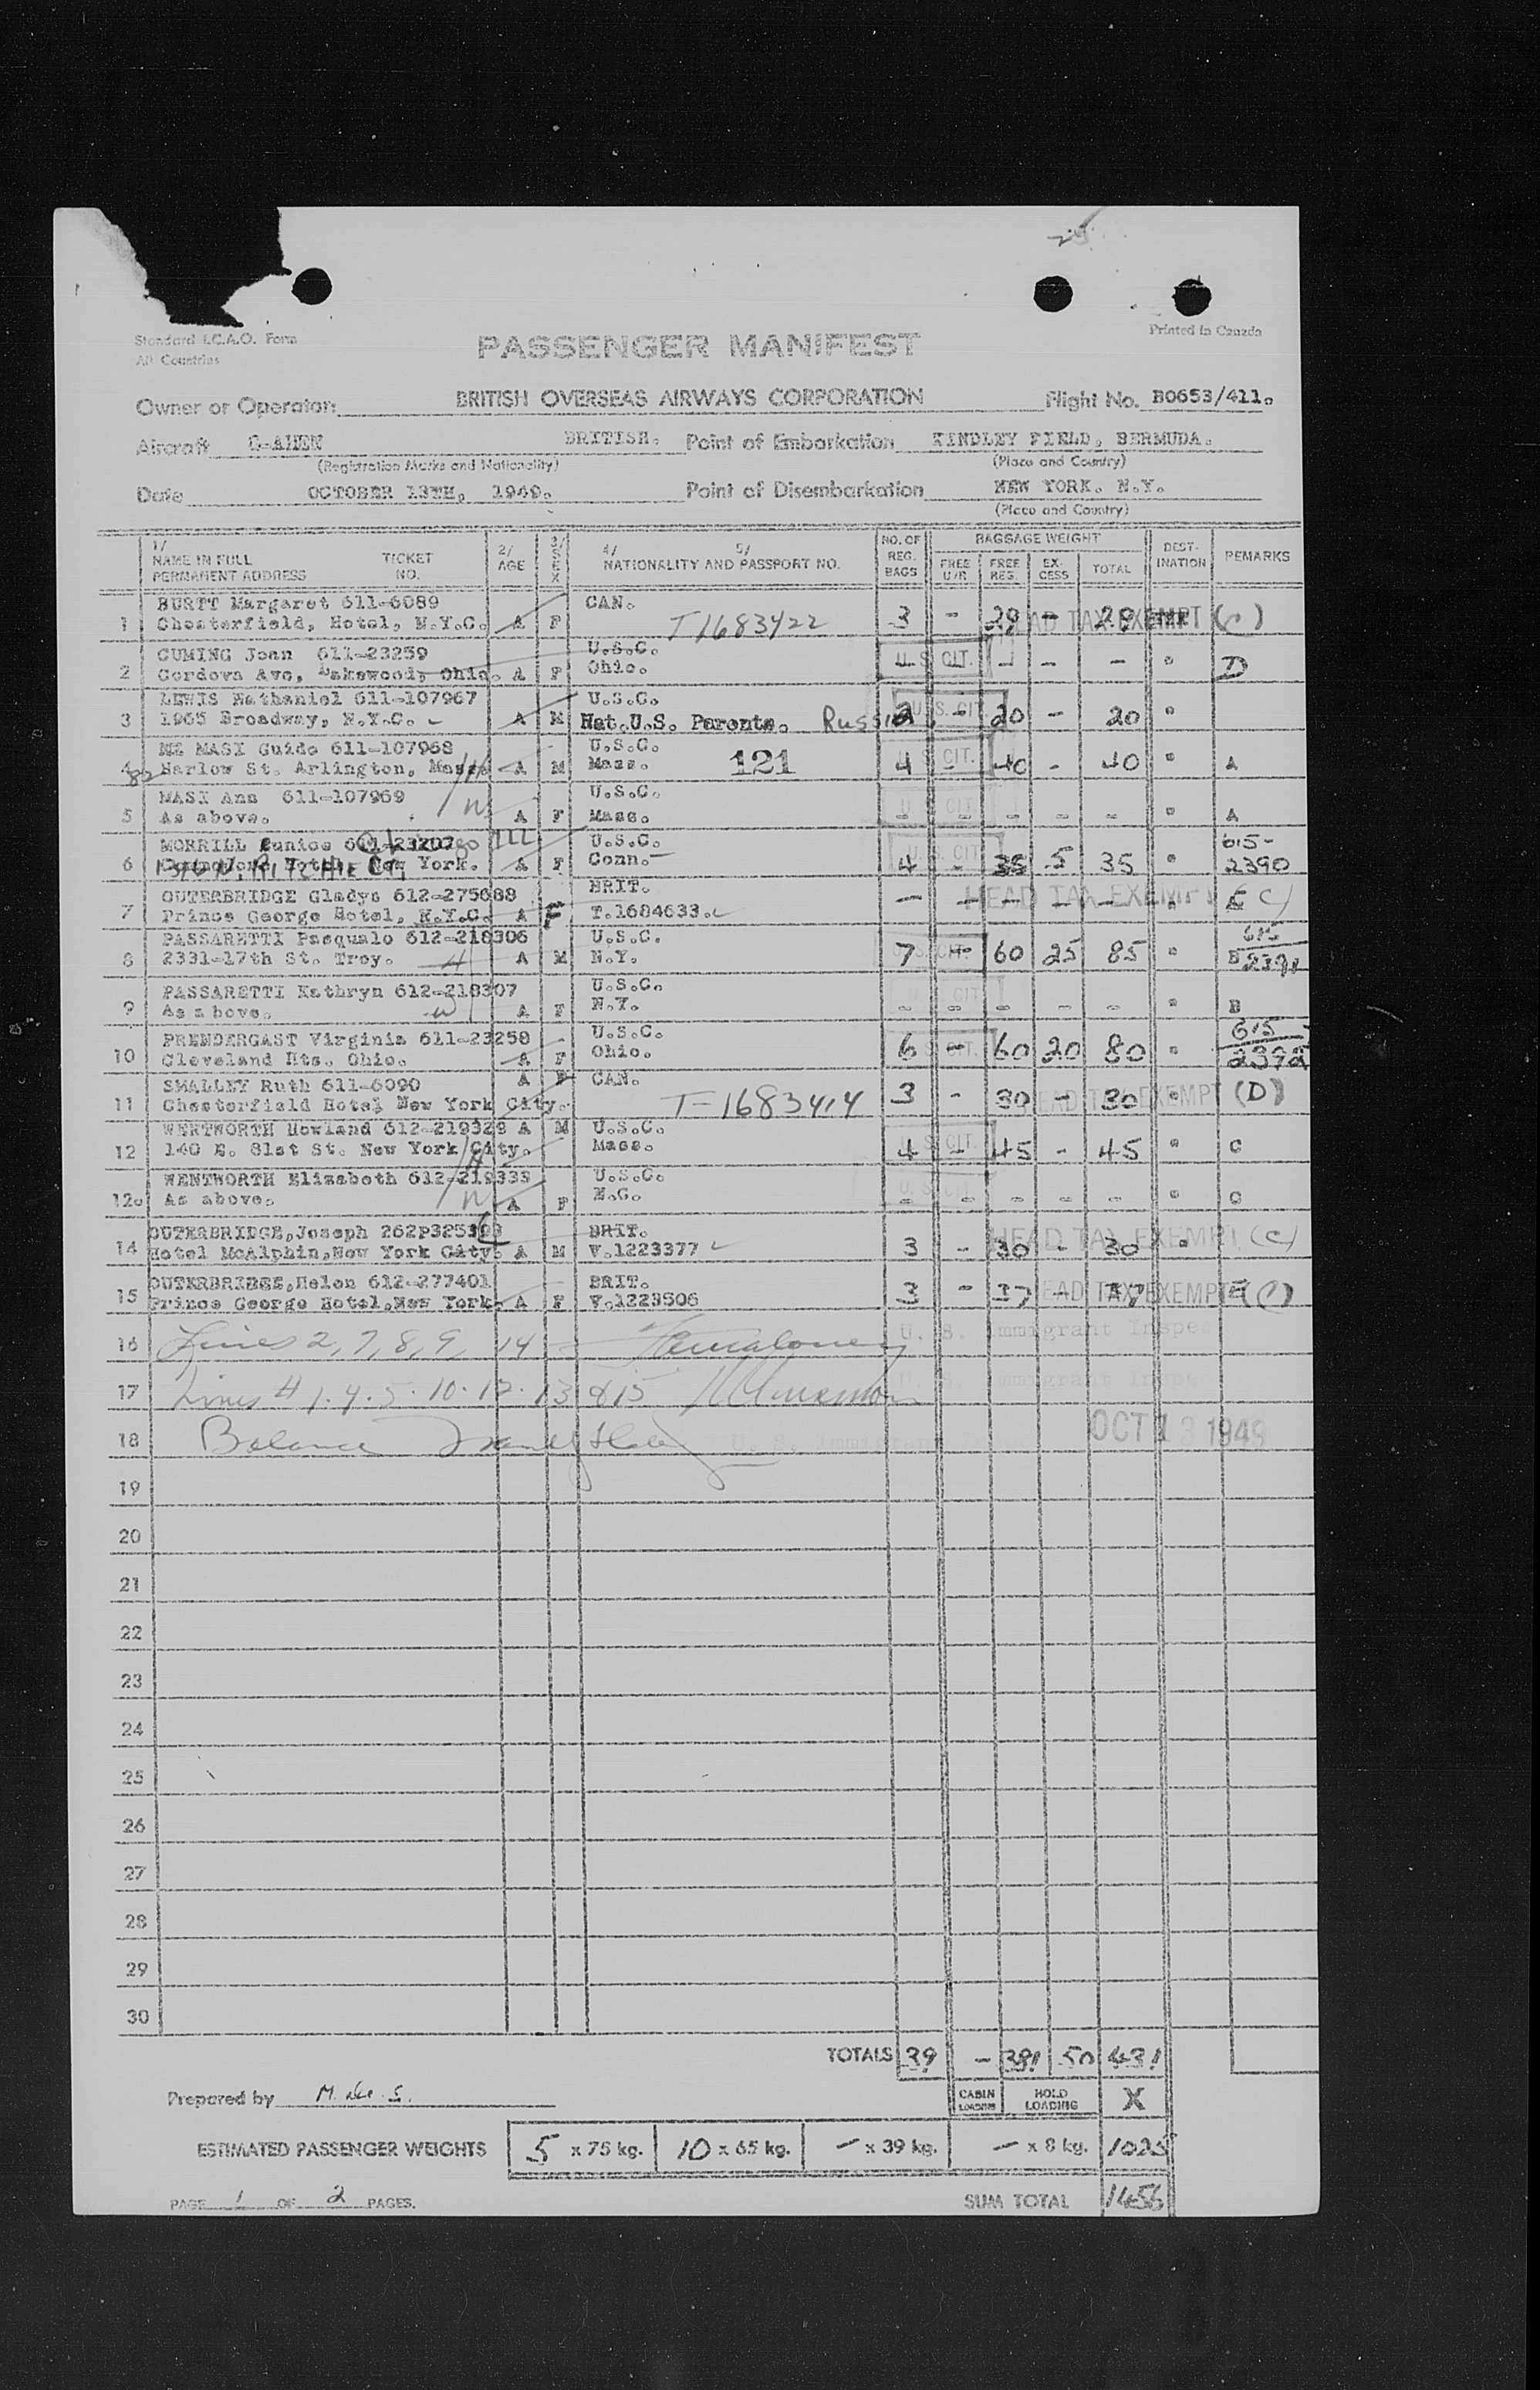 Standard I.C.A.O. Form
All Countries
PASSENGER MANIFEST
Printed in Canada
Owner or Operator: BRITISH OVERSEAS AIRWAYS CORPORATION Flight No. B0653/411.
Aircraft G-AHEN BRITISH. Point of Embarkation KINDLEY FIELD, BERMUDA.
(Registration Marks and Nationality) (Place and Country)
Date OCTOBER 13TH, 1949. Point of Disembarkation NEW YORK. N.Y.
(Place and Country)
1/ NAME IN FULL PERMANENT ADDRESS TICKET NO. 2/ AGE 3/ SEX 4/ 5/ NATIONALITY AND PASSPORT NO. NO. OF REG. BAGS BAGGAGE WEIGHT FREE U/R FREE REG. EXCESS TOTAL DESTINATION REMARKS
BURTT Margaret 611-6089 CAN.
1 Chesterfield, Hotel, N.Y.C. A F T1683422 3 - 29 - 29 HEAD TAX EXEMPT (C)
CUMING Joan 611-23259 U.S.C.
2 Cordova Ave, Lakewood, Ohio. A F Ohio. U.S. CIT. - - - - " D
LEWIS Nathaniel 611-107967 U.S.C.
3 1965 Broadway, N.Y.C. A M Nat.U.S. Parents. Russia U.S. CIT. 2 - 20 - 20 "
MASI Guido 611-107968 U.S.C.
4 82 Harlow St. Arlington, Mass. H A M Mass. 121 U.S. CIT. 4 - 40 - 40 " A
MASI Ann 611-107969 U.S.C.
5 As above. W A F Mass. U.S. CIT. - - - - - " A
MORRILL Eunice 611-23207 Ill U.S.C. 615-
6 New York. A F Conn. U.S. CIT. 4 - 35 5 35 " 2390
RITCHIE
OUTERBRIDGE Gladys 612-275688 BRIT.
7 Prince George Hotel, N.Y.C. A F T.1684633. - - - - - HEAD TAX EXEMPT (C)
PASSARETTI Pasquale 612-218306 U.S.C. 615
8 2331-17th St. Troy. H A M N.Y. U.S. CIT. 7 - 60 25 85 " B 2391
PASSARETTI Kathryn 612-218307 U.S.C.
9 As above. W A F N.Y. U.S. CIT. - - - - - " B
PRENDERGAST Virginia 611-23258 U.S.C. 615
10 Cleveland Hts. Ohio. A F Ohio. U.S. CIT. 6 - 60 20 80 " 2392
SMALLEY Ruth 611-6090 A F CAN.
11 Chesterfield Hotel New York City. T-1683414 3 - 30 - 30 " HEAD TAX EXEMPT (D)
WENTWORTH Howland 612-219328 A M U.S.C.
12 140 E. 81st St. New York City. H Mass. U.S. CIT. 4 - 45 - 45 " C
WENTWORTH Elizabeth 612-219339 U.S.C.
12. As above. W A F N.C. U.S. CIT. - - - - - " C
OUTERBRIDGE,Joseph BRIT.
14 Hotel McAlphin,New York City. A M V.1223377 3 - 30 - 30 " HEAD TAX EXEMPT (C)
OUTERBRIDGE,Helen 612-277401 BRIT.
15 Prince George Hotel,New York. A F V.1223506 3 - 37 - 37 HEAD TAX EXEMPT E (C)
16 Lines 2, 7, 8, 9, 14 U. S. Immigrant Inspec
17 Lines # 1. 4. 5. 10. 12. 13 & 15 U. S. Immigrant Inspec
18 Balance U. S. Immigrant OCT 13 1949
19
20
21
22
23
24
25
26
27
28
29
30
TOTALS 39 - 381 50 431
CABIN LOADING HOLD LOADING X
Prepared by
ESTIMATED PASSENGER WEIGHTS 5 x 75 kg. 10 x 65 kg. - x 39 kg. - x 8 kg. 1025
PAGE 1 OF 2 PAGES. SUM TOTAL 1456